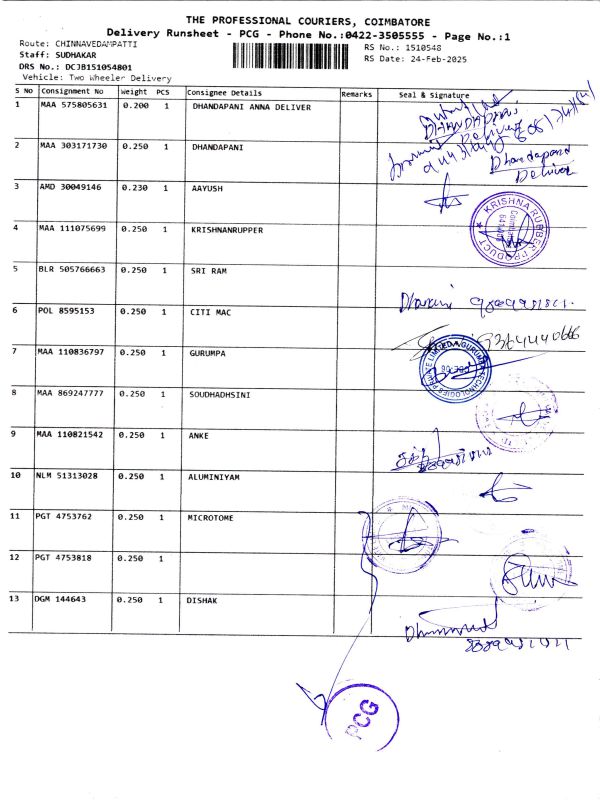 THE PROFESSIONAL COURIERS, COIMBATORE
Delivery Runsheet - PCG - Phone No.:0422-3505555 - Page No.:1
Route: CHINNAVEDAMPATTI
RS No.: 1510548
Staff: SUDHAKAR
RS Date: 24-Feb-2025
DRS No.: DCJB151054801
Vehicle: Two Wheeler Delivery
S No Consignment No Weight PCS Consignee Details Remarks Seal & Signature
1 MAA 575805631 0.200 1 DHANDAPANI ANNA DELIVER
2 MAA 303171730 0.250 1 DHANDAPANI
Dhandapani
Deliver
3 AMD 30049146 0.230 1 AAYUSH
4 MAA 111075699 0.250 1 KRISHNANRUPPER
KRISHNA RUBBER PRODUCT
5 BLR 505766663 0.250 1 SRI RAM
Dharani
6 POL 8595153 0.250 1 CITI MAC
9364440666
7 MAA 110836797 0.250 1 GURUMPA
8 MAA 869247777 0.250 1 SOUDHADHSINI
9 MAA 110821542 0.250 1 ANKE
10 NLM 51313028 0.250 1 ALUMINIYAM
11 PGT 4753762 0.250 1 MICROTOME
12 PGT 4753818 0.250 1
13 DGM 144643 0.250 1 DISHAK
PCG